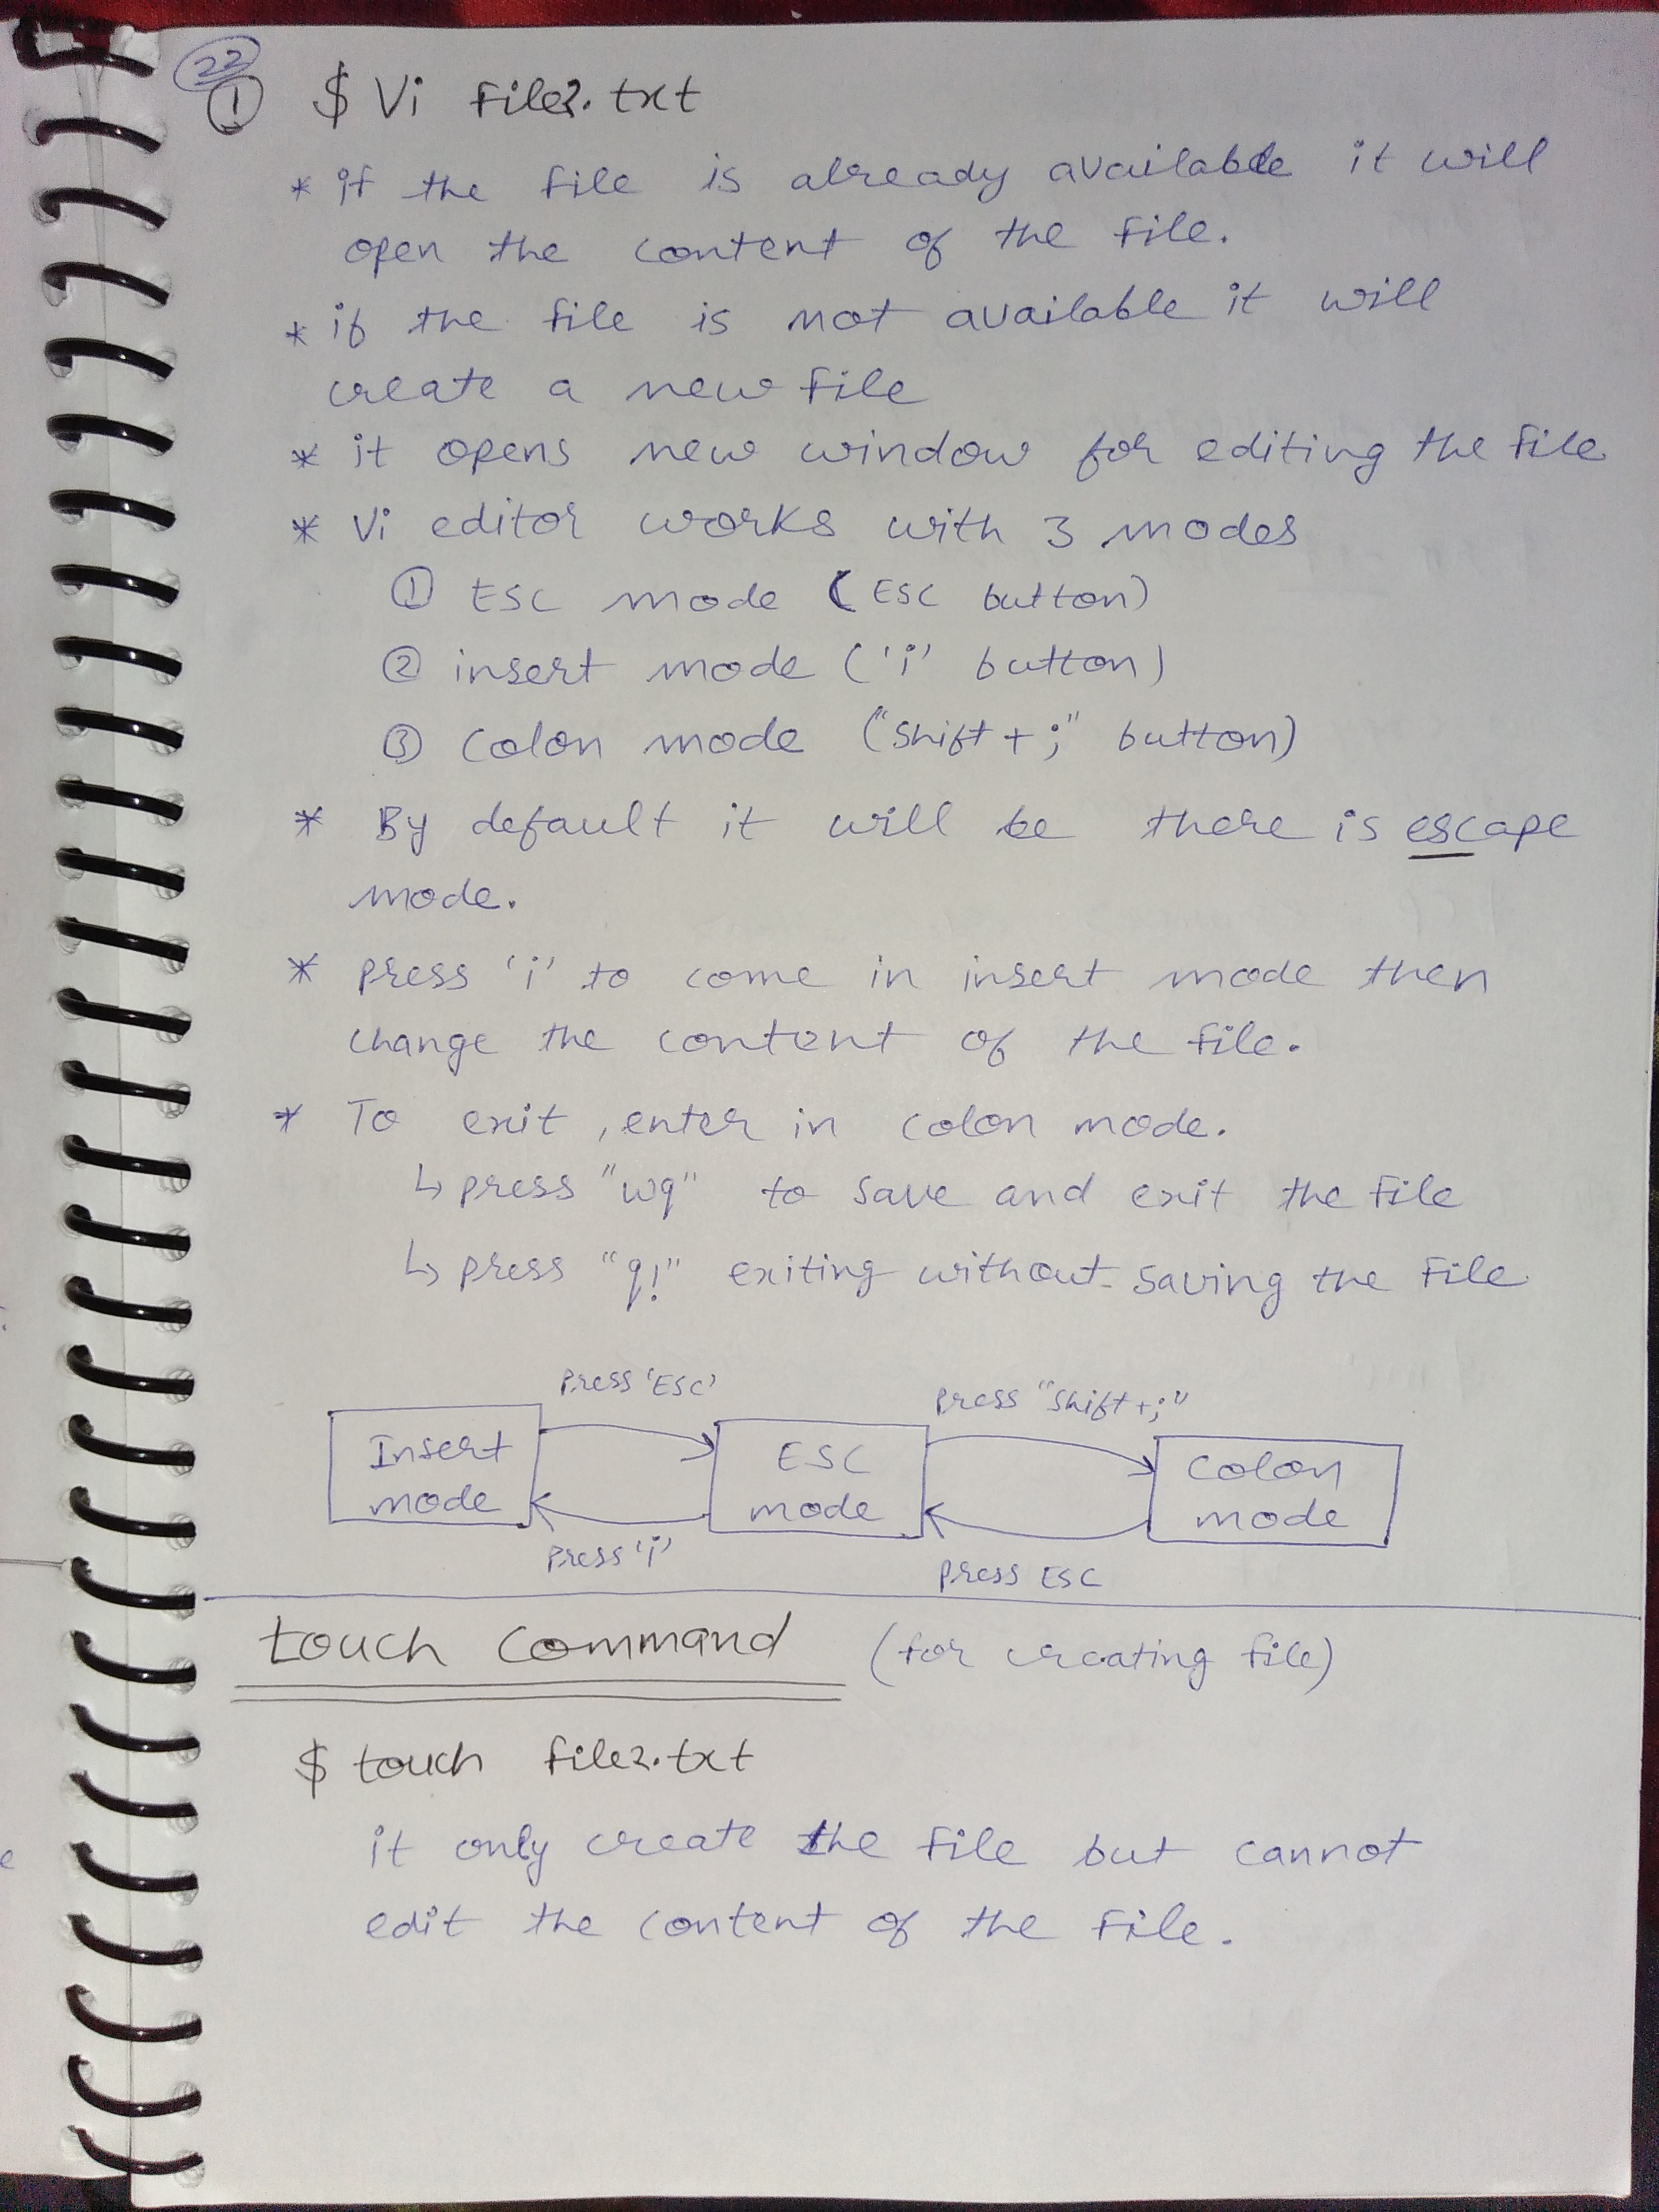 22
① $ Vi file2.txt
* if the file is already available it will
open the content of the file.
* if the file is not available it will
create a new file
* it opens new window for editing the file
* Vi editor works with 3 modes
① ESC mode (ESC button)
② insert mode ('i' button)
③ Colon mode ("Shift+;" button)
* By default it will be there is escape
mode.
* press 'i' to come in insert mode then
change the content of the file.
* To exit, enter in colon mode.
↳ press "wq" to save and exit the file
↳ press "q!" exiting without saving the file
press 'ESC'
press "Shift+;"
Insert
mode
ESC
mode
Colon
mode
press 'i'
press ESC
touch command (for creating file)
$ touch file2.txt
it only create the file but cannot
edit the content of the file.